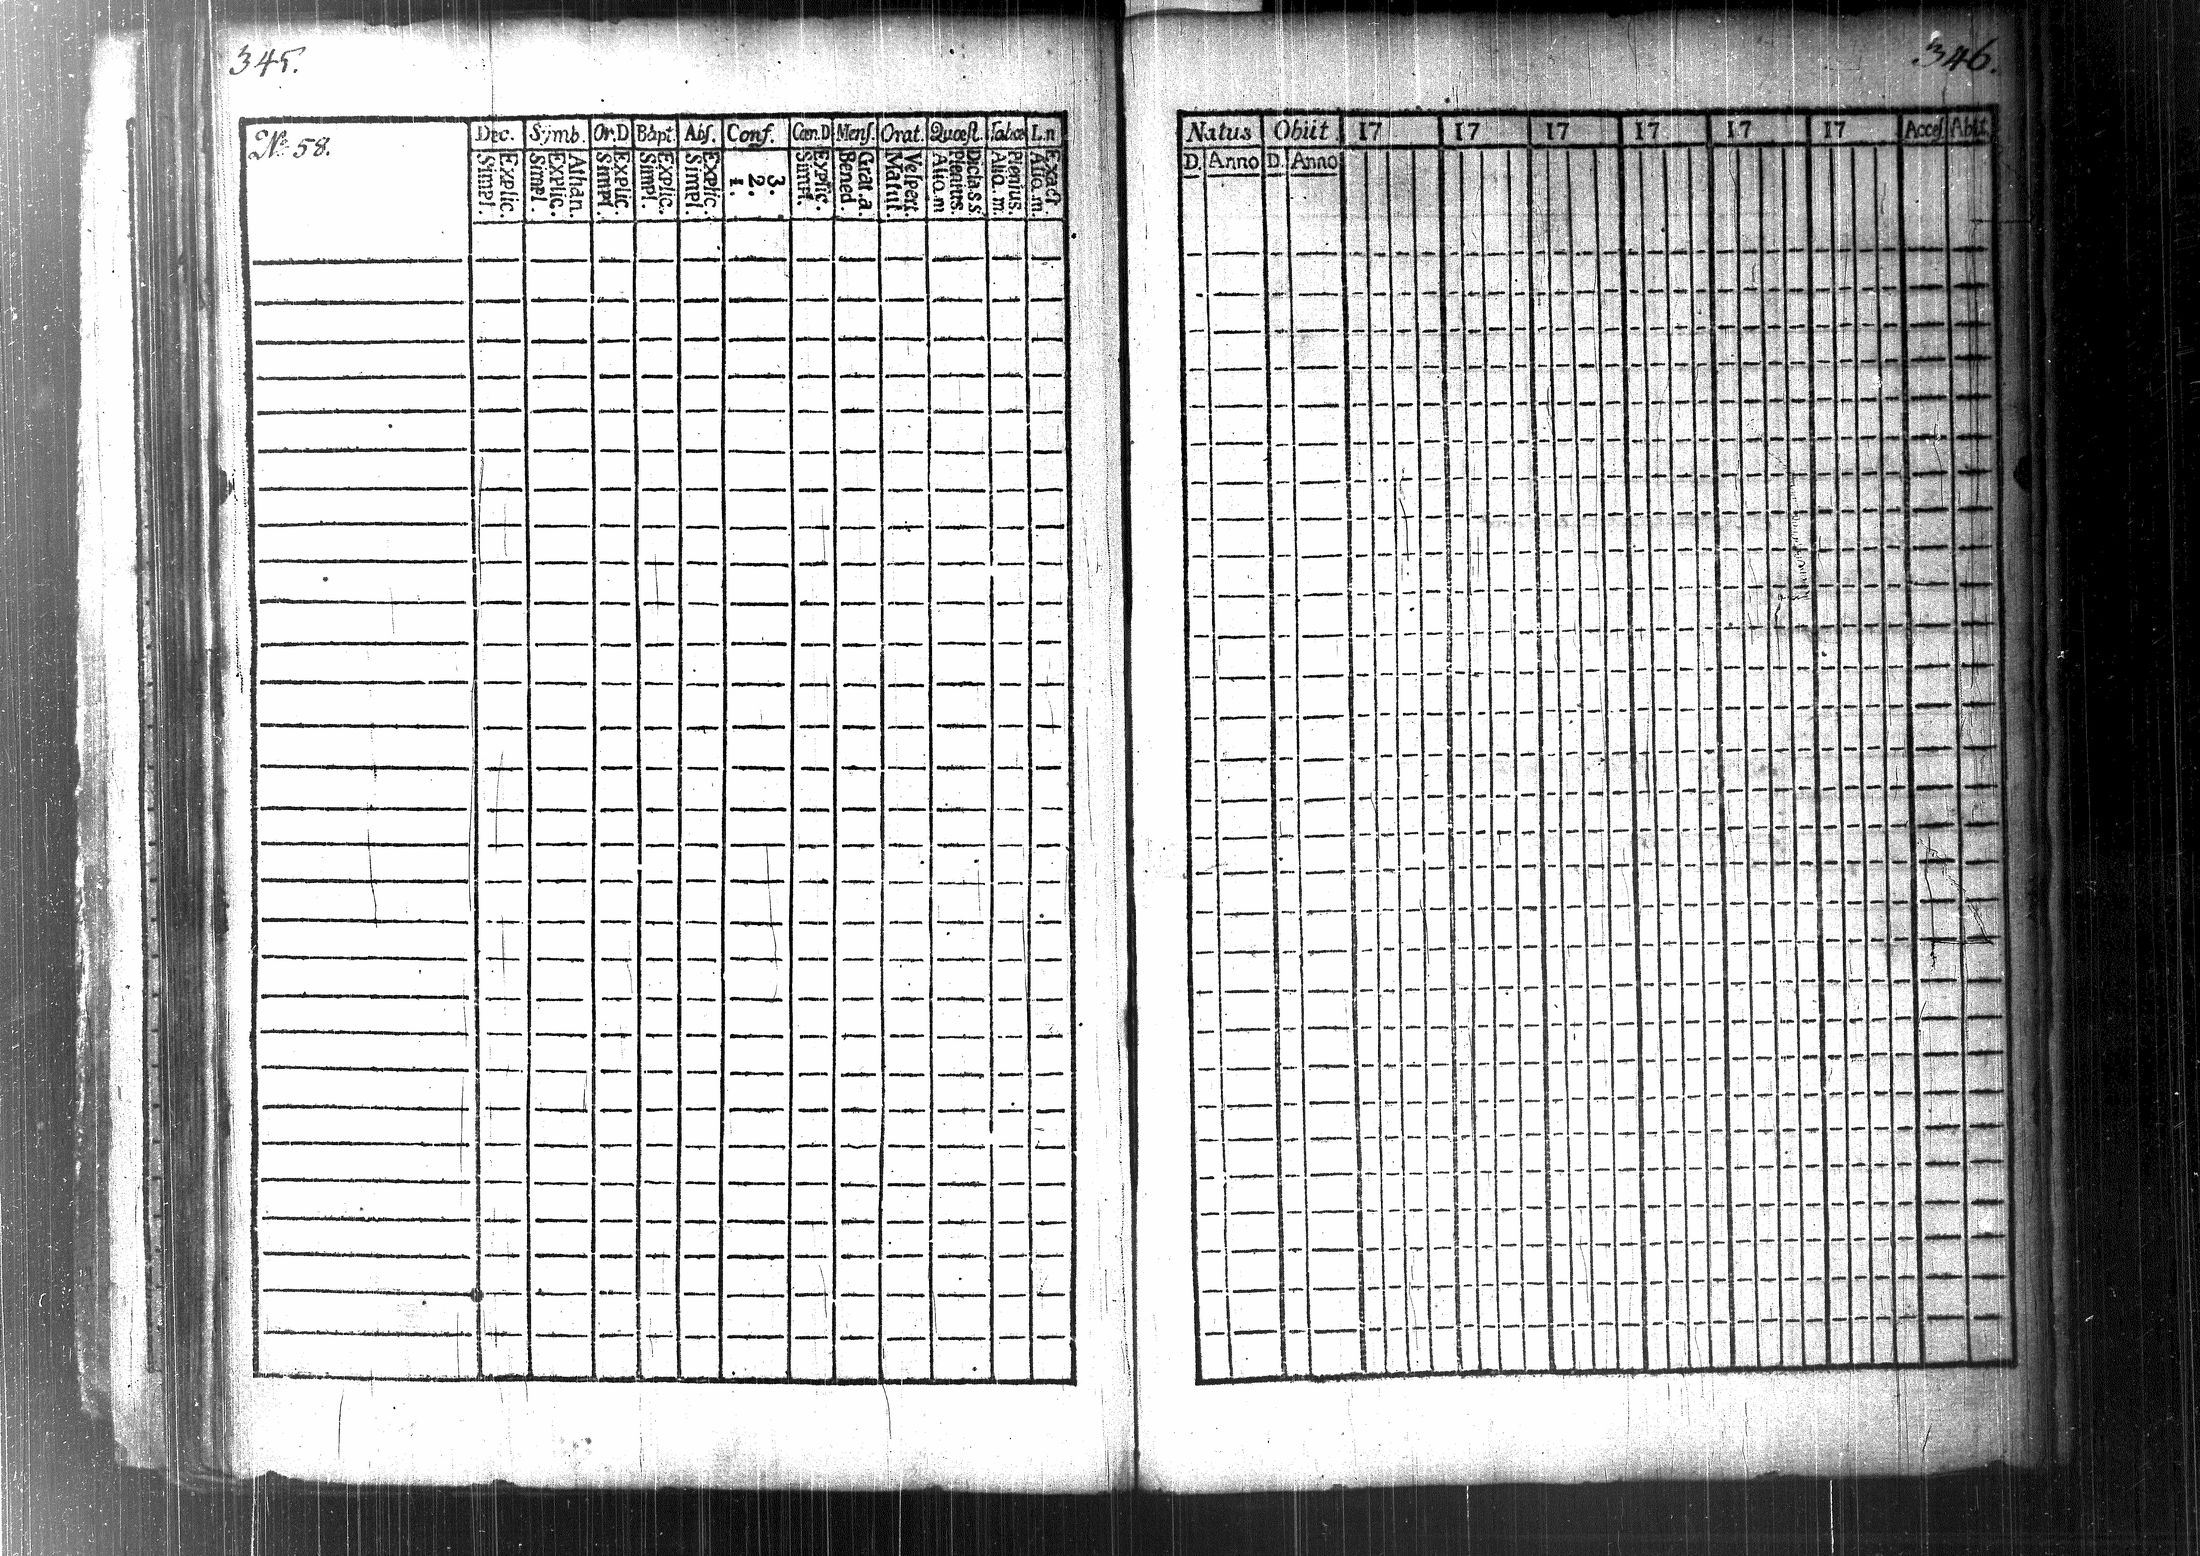 345.
No 58.
Dec. Sÿmb. Or.D Bapt. Abſ. Conf. Cœn.D Menſ. Orat. Quœſt. Tabœ L.n
Simpl. Explic. Simpl. Explic. Athan. Simpl. Explic. Simpl. Explic. Simpl. Explic. 1. 2. 3. Simpl. Explic. Bened. Grat.a. Matut. Veſpert. Aliq.m Plenius. Dicta.s.s Aliq.m. Plenius. Aliq.m. Exact.
346.
Natus Obiit 17 17 17 17 17 17 Acceſ Abiit
D. Anno D. Anno